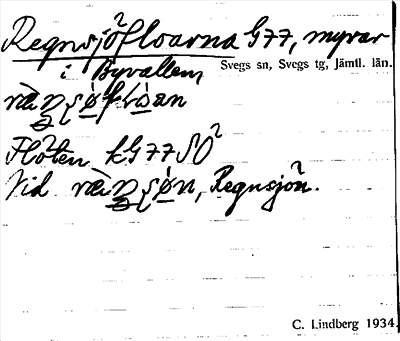 Regnsjöfloarna G77, myrar
i Byvallen
Svegs sn, Svegs tg, Jämtl. län.
Flöten kG77SO
Vid Regnsjön.
C. Lindberg 1934.